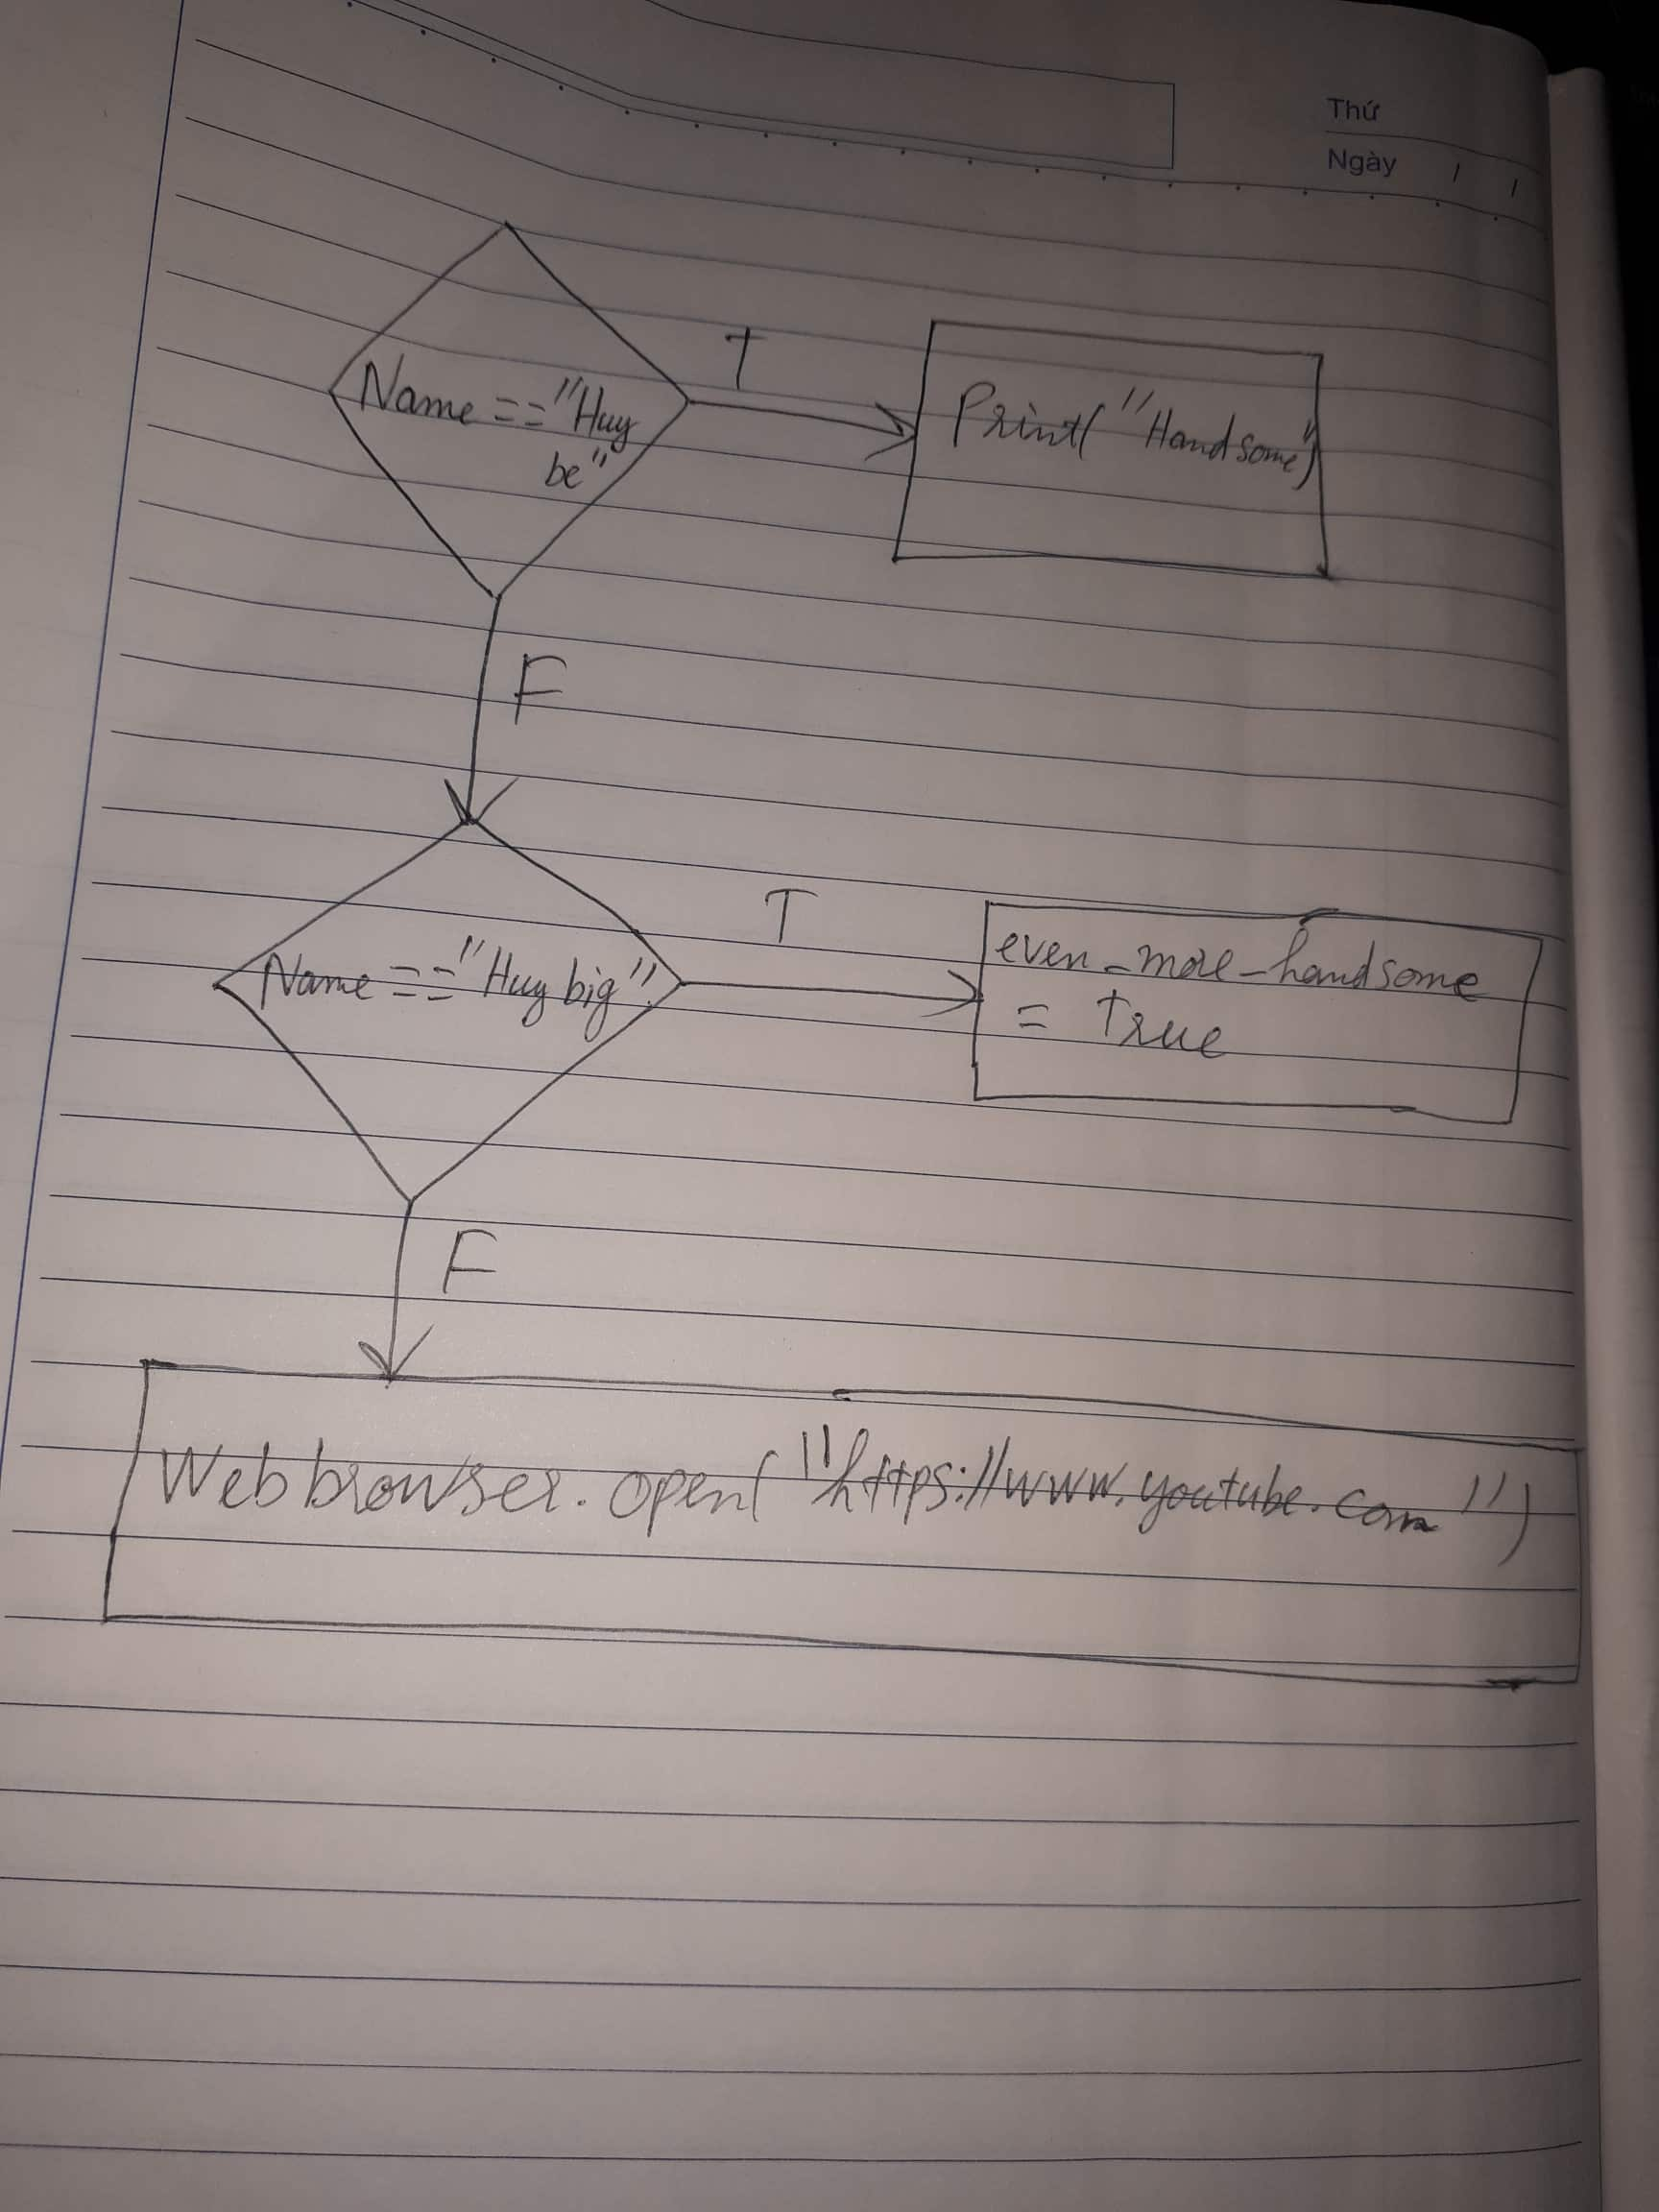 Thứ
Ngày / /
Name == "Huy
be"
T
Print("Handsome")
F
Name == "Huy big"
T
even_more_handsome
= True
F
Webbrowser.open("https://www.youtube.com")